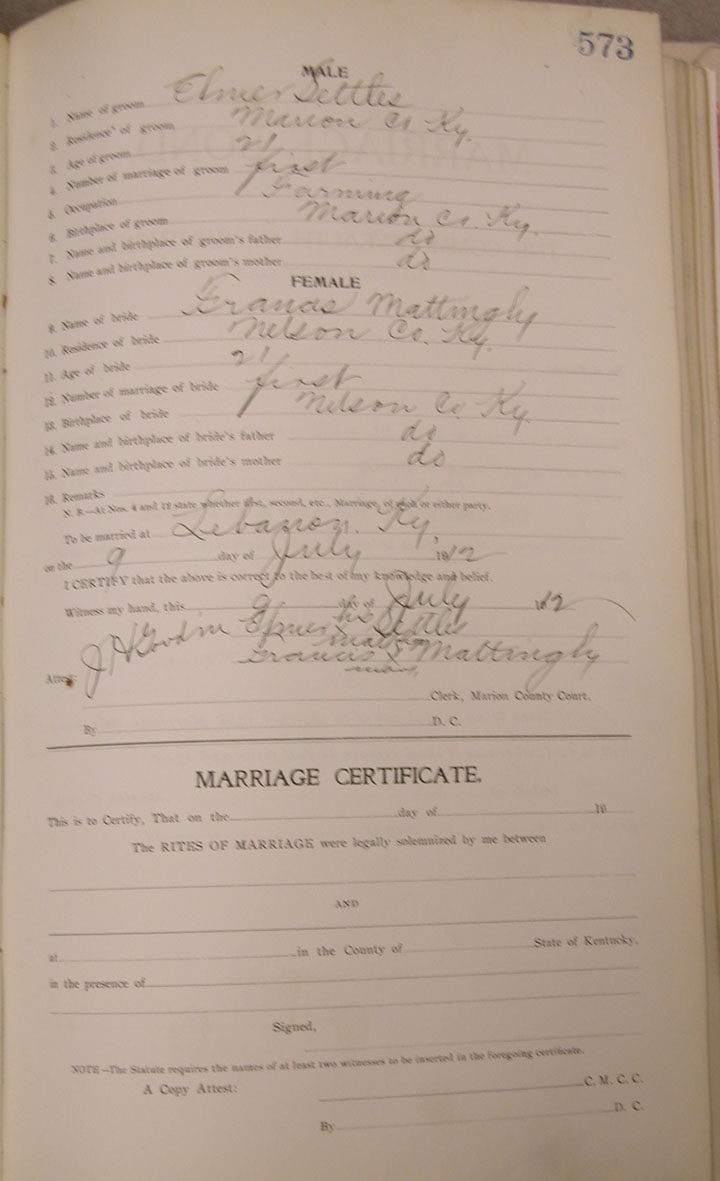 573
MALE
1. Name of groom Elmer Settles
2. Residence of groom Marion Co. Ky.
3. Age of groom 21
4. Number of marriage of groom first
5. Occupation Farming
6. Birthplace of groom Marion Co. Ky.
7. Name and birthplace of groom's father do
8. Name and birthplace of groom's mother do
FEMALE
9. Name of bride Francis Mattingly
10. Residence of bride Nelson Co. Ky.
11. Age of bride 21
12. Number of marriage of bride first
13. Birthplace of bride Nelson Co. Ky.
14. Name and birthplace of bride's father do
15. Name and birthplace of bride's mother do
16. Remarks
N. B.—At Nos. 4 and 12 state whether first, second, etc., Marriage, of each or either party.
To be married at Lebanon. Ky,
on the 9 day of July 1912
I CERTIFY that the above is correct to the best of my knowledge and belief.
Witness my hand, this 9 day of July 1912
Elmer his x mark Settles
Francis her x mark Mattingly
Attest:
Clerk, Marion County Court.
By D. C.
MARRIAGE CERTIFICATE.
This is to Certify, That on the day of 19
The RITES OF MARRIAGE were legally solemnized by me between
AND
at in the County of State of Kentucky,
in the presence of
Signed,
NOTE—The Statute requires the names of at least two witnesses to be inserted in the foregoing certificate.
A Copy Attest: C. M. C. C.
By D. C.